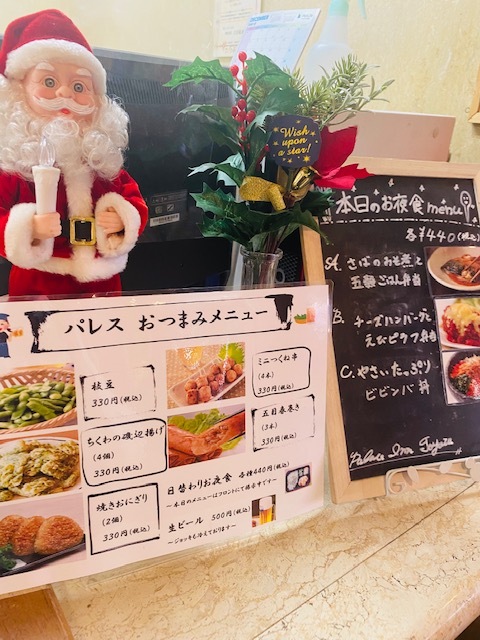 Wish
upon
a
star!
本日のお夜食 menu
各¥440(税込)
A. さばのみそ煮と
五穀ごはん弁当
B. チーズハンバーグと
えびピラフ弁当
C. やさいたっぷり
ビビンバ丼
パレス おつまみメニュー
枝豆
330円(税込)
ミニつくね串
(4本)
330円(税込)
ちくわの磯辺揚げ
(4個)
330円(税込)
五目春巻き
(3本)
330円(税込)
焼きおにぎり
(2個)
330円(税込)
日替わりお夜食 各種440円(税込)
～本日のメニューはフロントにて掲示中です～
生ビール 500円(税込)
～ジョッキも冷えております～
Palace Inn